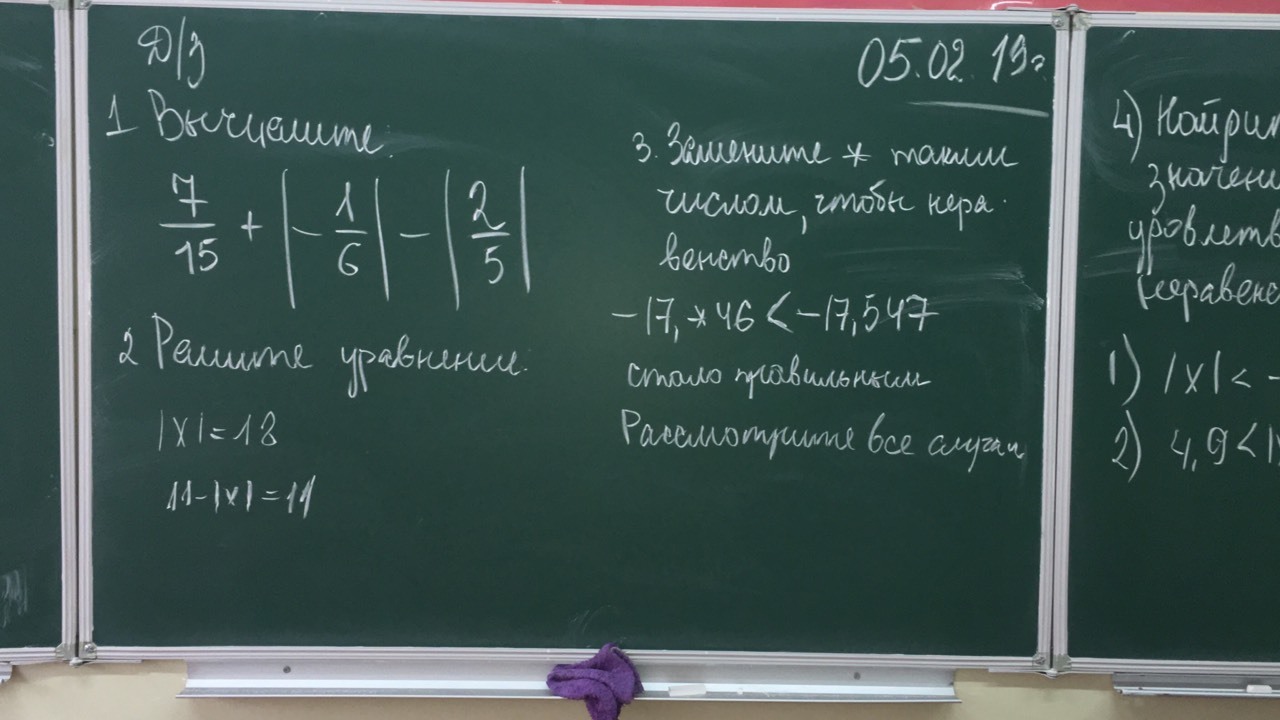 Д/З
05.02.19г.
1 Вычислите:
7/15 + |-1/6| - |2/5|
2 Решите уравнение:
|x|=18
11-|x|=11
3. Замените * таким
числом, чтобы нера-
венство
-17,*46 < -17,547
стало правильным
Рассмотрите все случаи
4) Найдит
значени
удовлетв
неравенс
1) |x| < -
2) 4,9<|